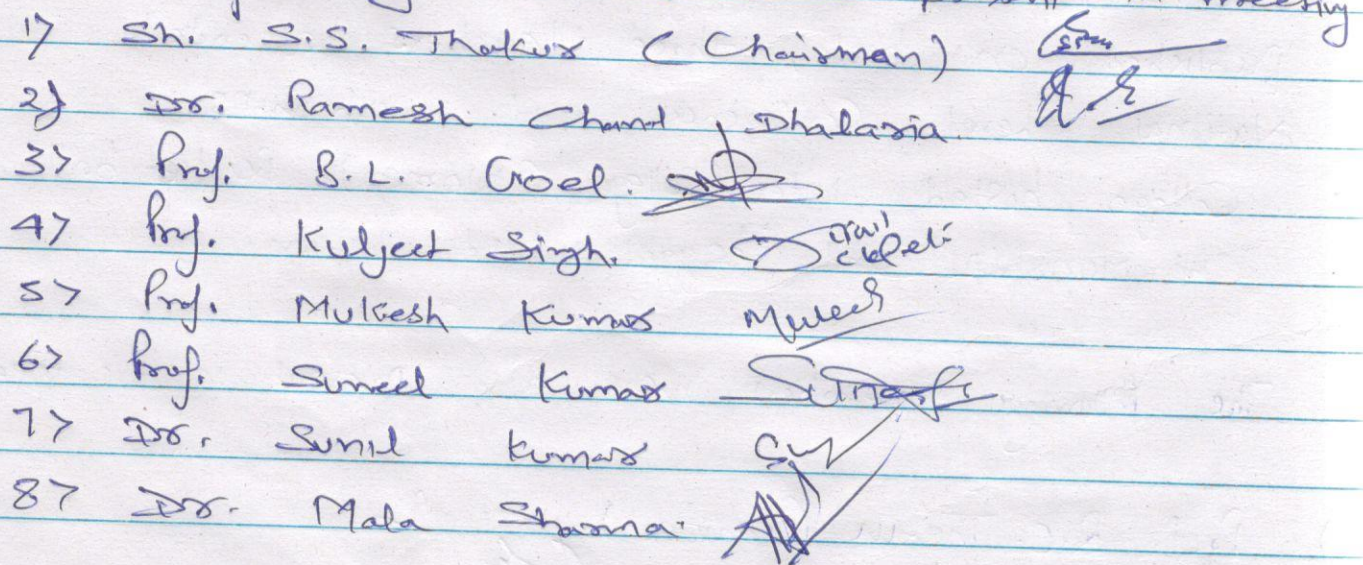 meeting
1) Sh. S.S. Thakur (Chairman)
2) Dr. Ramesh Chand Dhalaria.
3) Prof. B.L. Goel.
4) Prof. Kuljeet Singh.
5) Prof. Mukesh Kumar Mukesh
6) Prof. Suneel Kumar
7) Dr. Sunil Kumar
8) Dr. Mala Sharma.